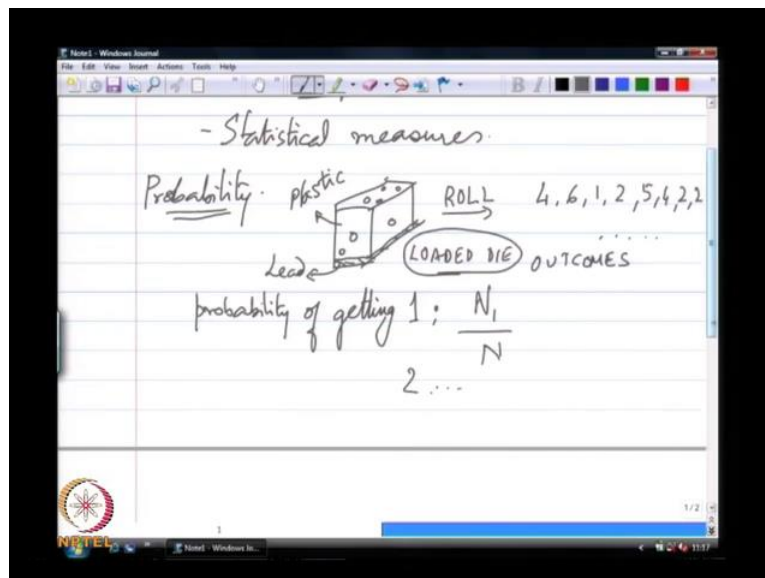 Note1 - Windows Journal
File Edit View Insert Actions Tools Help
B I
- Statistical measures.
Probability. plastic ROLL 4, 6, 1, 2, 5, 4, 2, 2
.....
Lead LOADED DIE OUTCOMES
probability of getting 1 ; N1
N
2 ...
1/2
1
NPTEL Note1 - Windows Jo... 11:17